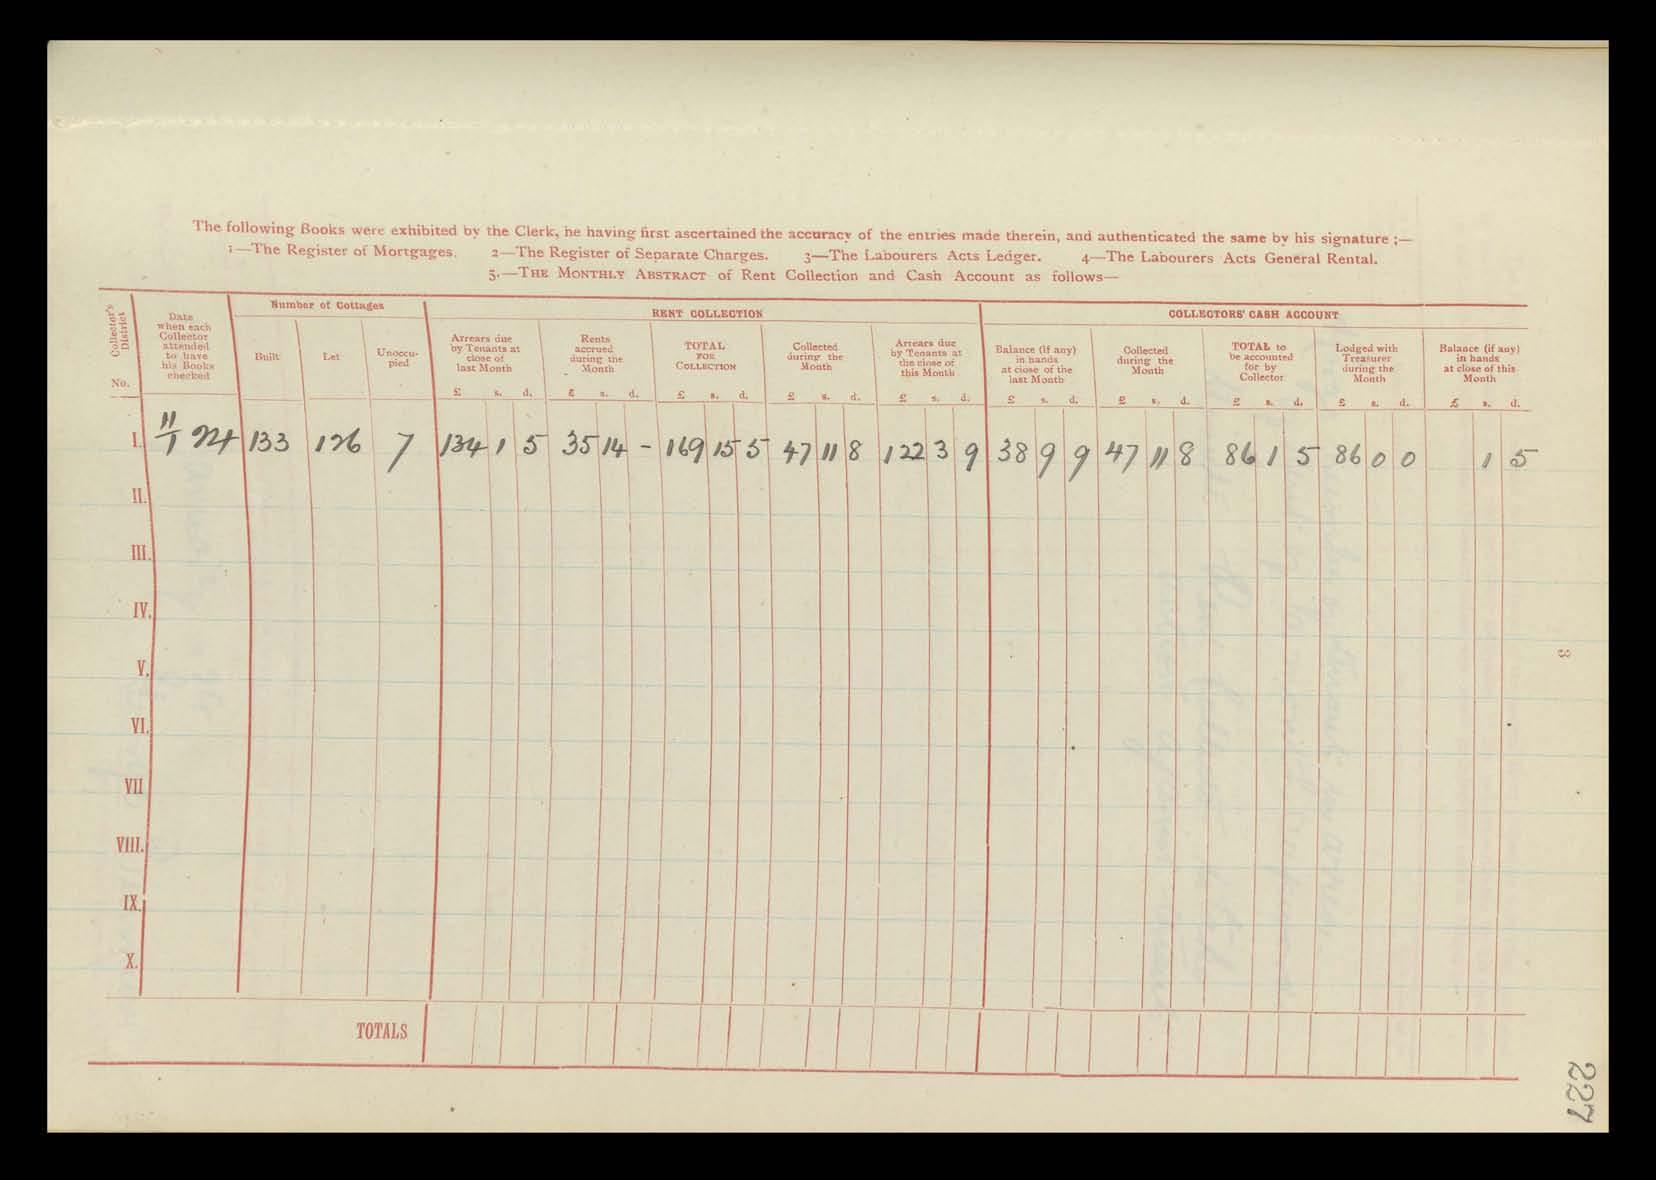 The following Books were exhibited by the Clerk, he having first ascertained the accuracy of the entries made therein, and authenticated the same by his signature ;—
1—The Register of Mortgages. 2—The Register of Separate Charges. 3—The Labourers Acts Ledger. 4—The Labourers Acts General Rental.
5.—THE MONTHLY ABSTRACT of Rent Collection and Cash Account as follows—
Collector's District No.
Date when each Collector attended to have his Books checked
Number of Cottages
Built Let Unoccupied
RENT COLLECTION
Arrears due by Tenants at close of last Month £ s. d.
Rents accrued during the Month £ s. d.
TOTAL FOR COLLECTION £ s. d.
Collected during the Month £ s. d.
Arrears due by Tenants at the close of this Month £ s. d.
COLLECTORS' CASH ACCOUNT
Balance (if any) in hands at close of the last Month £ s. d.
Collected during the Month £ s. d.
TOTAL to be accounted for by Collector £ s. d.
Lodged with Treasurer during the Month £ s. d.
Balance (if any) in hands at close of this Month £ s. d.
I. 11/1 24 133 126 7 134 1 5 35 14 - 169 15 5 47 11 8 122 3 9 38 9 9 47 11 8 86 1 5 86 0 0 1 5
II.
III.
IV.
V.
VI.
VII
VIII.
IX.
X.
TOTALS
3
227